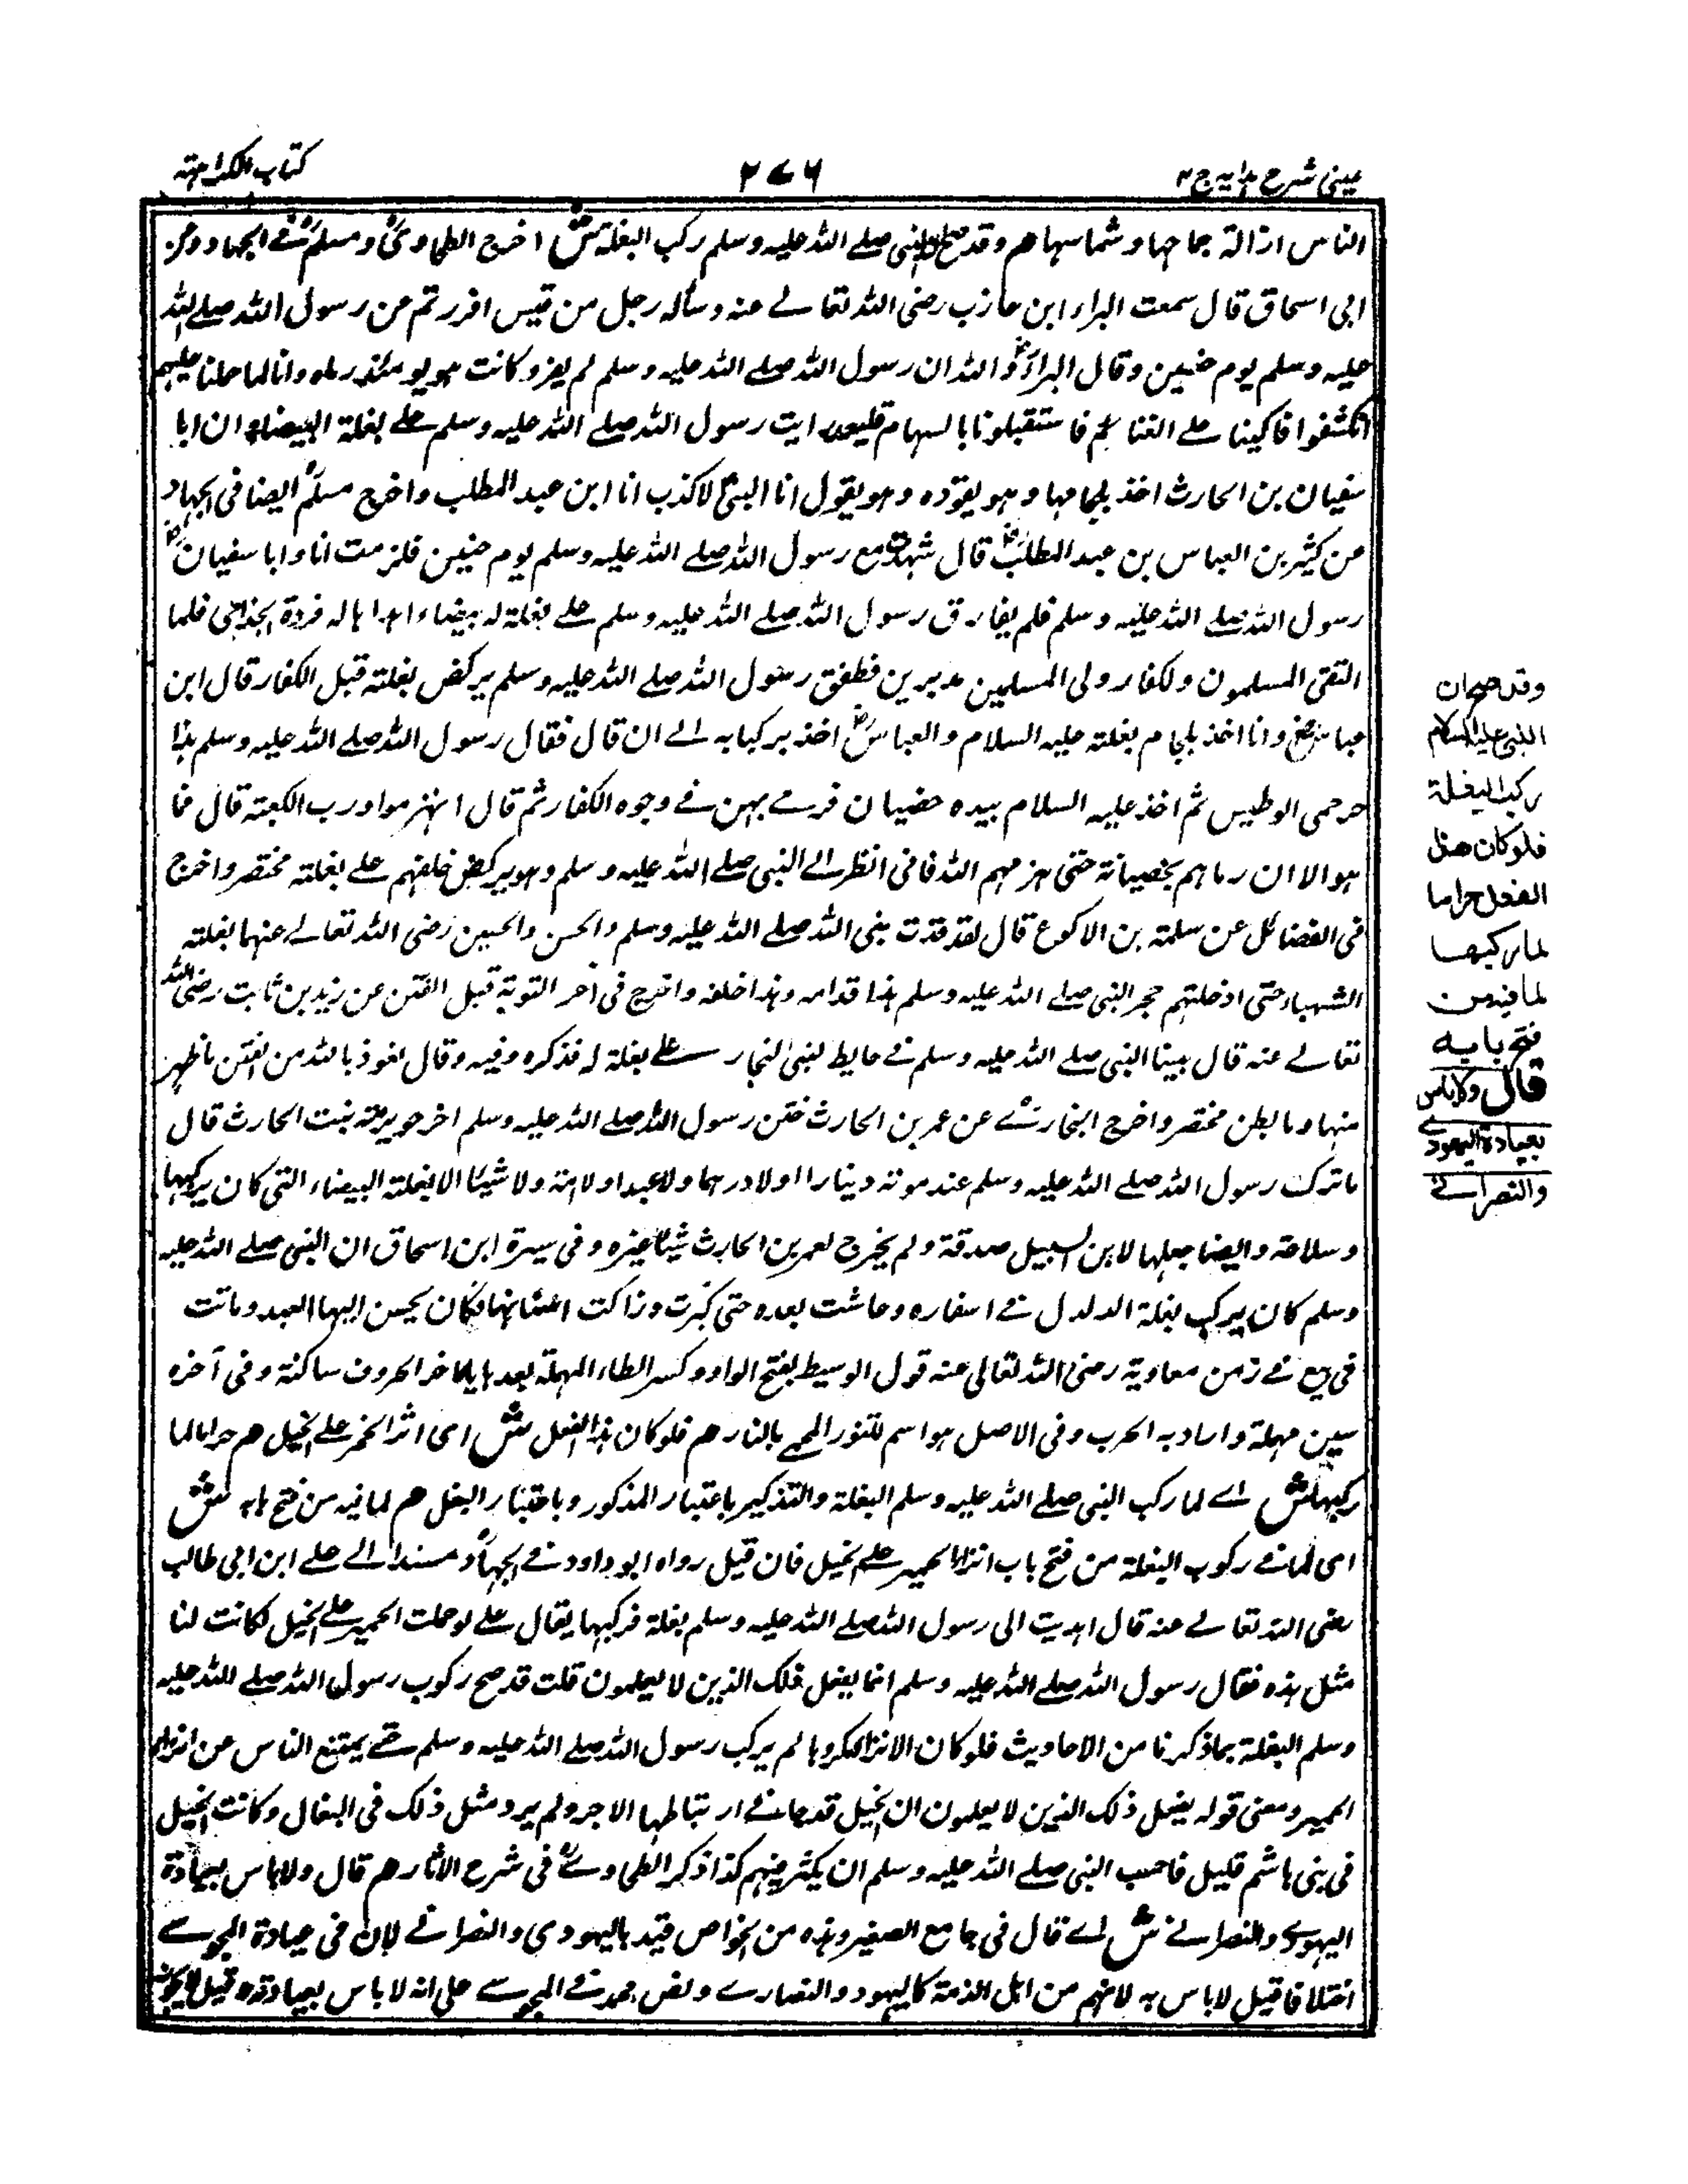 عینی شرح ہدایہ ج ۴
۲۷۶
کتاب الکراہتہ
الناس ازالة جماحہا و شماسہا ھم وقد صح ان النبی صلے اللہ علیہ وسلم رکب البغلة ش اخرج الطحاویؒ و مسلمؒ فے الجہاد و عن
ابی اسحاق قال سمعت البراء ابن عازب رضی اللہ تعالے عنہ وسألہ رجل من قیس افررتم عن رسول اللہ صلے اللہ
علیہ وسلم یوم حنین وقال البراء واللہ ان رسول اللہ صلے اللہ علیہ وسلم لم یفر وکانت ہو یومئذ رماہ وانا لما حملنا علیہم
انکشفوا فاکبنا علے الغنائم فاستقبلونا بالسہام رایت رسول اللہ صلے اللہ علیہ وسلم علے بغلة البیضاء ان ابا
سفیان بن الحارث اخذ بلجامہا وہو یقودہ وہو یقول انا النبی لا کذب انا ابن عبد المطلب واخرج مسلمؒ ایضا فی الجہاد
عن کثیر بن العباس بن عبد المطلب قال شہدت مع رسول اللہ صلے اللہ علیہ وسلم یوم حنین فلزمت انا وابا سفیان
رسول اللہ صلے اللہ علیہ وسلم فلم یفارق رسول اللہ صلے اللہ علیہ وسلم علے بغلة لہ بیضاء اہداہا لہ فردة الجذامی فلما
التقی المسلمون ولکفار ولی المسلمین مدبرین فطفق رسول اللہ صلے اللہ علیہ وسلم یرکض بغلتہ قبل الکفار قال ابن
عباس وانا اخذ بلجام بغلتہ علیہ السلام والعباس اخذ برکابہ الے ان قال فقال رسول اللہ صلے اللہ علیہ وسلم ہذا
حرحمی الوطیس ثم اخذ علیہ السلام بیدہ حضیان فرمے بہن فے وجوہ الکفار ثم قال انہزموا ورب الکعبتہ قال فما
ہو الا ان رماہم بحصیاتہ حتی ہزمہم اللہ فانی انظر الے النبی صلے اللہ علیہ وسلم وہو یرکض خلفہم علے بغلتہ مختصر واخرج
فی الفضائل عن سلمتہ بن الاکوع قال لقد قدت بنی اللہ صلے اللہ علیہ وسلم والحسن والحسین رضی اللہ تعالے عنہما بغلتہ
الشہباء حتی ادخلتہم حجر النبی صلے اللہ علیہ وسلم ہذا قدامہ وہذا خلفہ واخرج فی اخر التوبة قبل الفتن عن زید بن ثابت رضی اللہ
تعالے عنہ قال بینا النبی صلے اللہ علیہ وسلم فے حایط لبنی النجار علے بغلة لہ فذکرہ وفیہ وقال نعوذ باللہ من الفتن ما ظہر
منہا وما بطن مختصر واخرج البخاریؒ عن عمر بن الحارث ختن رسول اللہ صلے اللہ علیہ وسلم اخر جویریتہ بنت الحارث قال
ما ترک رسول اللہ صلے اللہ علیہ وسلم عند موتہ دینارا اولا درہما ولا عبدا ولا امة ولا شیئا الا بغلتہ البیضاء التی کان یرکبہا
وسلاحہ وایضا جعلہا لابن السبیل صدقة ولم یخرج لعمر بن الحارث شیئا غیرہ وفی سیرة ابن اسحاق ان النبی صلے اللہ علیہ
وسلم کان یرکب بغلة الدلدل فے اسفارہ وعاشت بعدہ حتی کبرت وزاکت اسنانہا فکان یحسن الیہا العبد وماتت
فی بیع فے زمن معاویة رضی اللہ تعالی عنہ قول الوسیط بفتح الواو وکسر الطاء المہملة بعدہا یا اخر الحروف ساکنة وفی آخرہ
سین مہملة واراد بہ الحرب وفی الاصل ہو اسم للتنور المحمے بالنار ھم فلو کان ہذا الفعل ش ای انزا الحمر علے الخیل ھم حراما لما
رکبہا ش اے لما رکب النبی صلے اللہ علیہ وسلم البغلة والتذکیر باعتبار المذکور وباعتبار البغل ھم لما فیہ من فتح بابہ ش
ای لما فے رکوب البغلة من فتح باب انزاء الحمیر علے الخیل فان قیل رواہ ابو داود فے الجہاد مسندا الے علے ابن ابی طالب
رضی اللہ تعالے عنہ قال اہدیت الی رسول اللہ صلے اللہ علیہ وسلم بغلة فرکبہا یقال علے لو حملت الحمیر علے الخیل لکانت لنا
مثل ہذہ فقال رسول اللہ صلے اللہ علیہ وسلم انما یفعل ذلک الذین لا یعلمون قلت قد صح رکوب رسول اللہ صلے اللہ علیہ
وسلم البغلة بما ذکرنا من الاحادیث فلو کان الانزا مکروہا لم یرکب رسول اللہ صلے اللہ علیہ وسلم حتے یمتنع الناس عن انزاء
الحمیر ومعنی قولہ یفعل ذلک الذین لا یعلمون ان الخیل قد جا فے ارتباطہا الاجر ولم یرد مثل ذلک فی البغال وکانت الخیل
فی بنی ہاشم قلیل فاحب النبی صلے اللہ علیہ وسلم ان یکثر فیہم کذا ذکر الطحاویؒ فی شرح الاثار ھم قال ولا باس بعیادة
الیہودی والنصرانے ش اے قال فی جامع الصغیر وہذہ من الخواص قید بالیہودی والنصرانے لان فی عیادة المجوسے
اختلافا قیل لا باس بہ لانہم من اہل الذمة کالیہود والنصارے ونص محمد فے المجوسے علی انہ لا باس بعیادتہ وقیل لا یجوز
وقد صح ان
النبی علیہ السلام
رکب البغلة
فلو کان ھذا
الفعل حراما
لما رکبھا
لما فیہ من
فتح بابہ
قال ولا باس
بعیادة الیھودی
والنصرانے